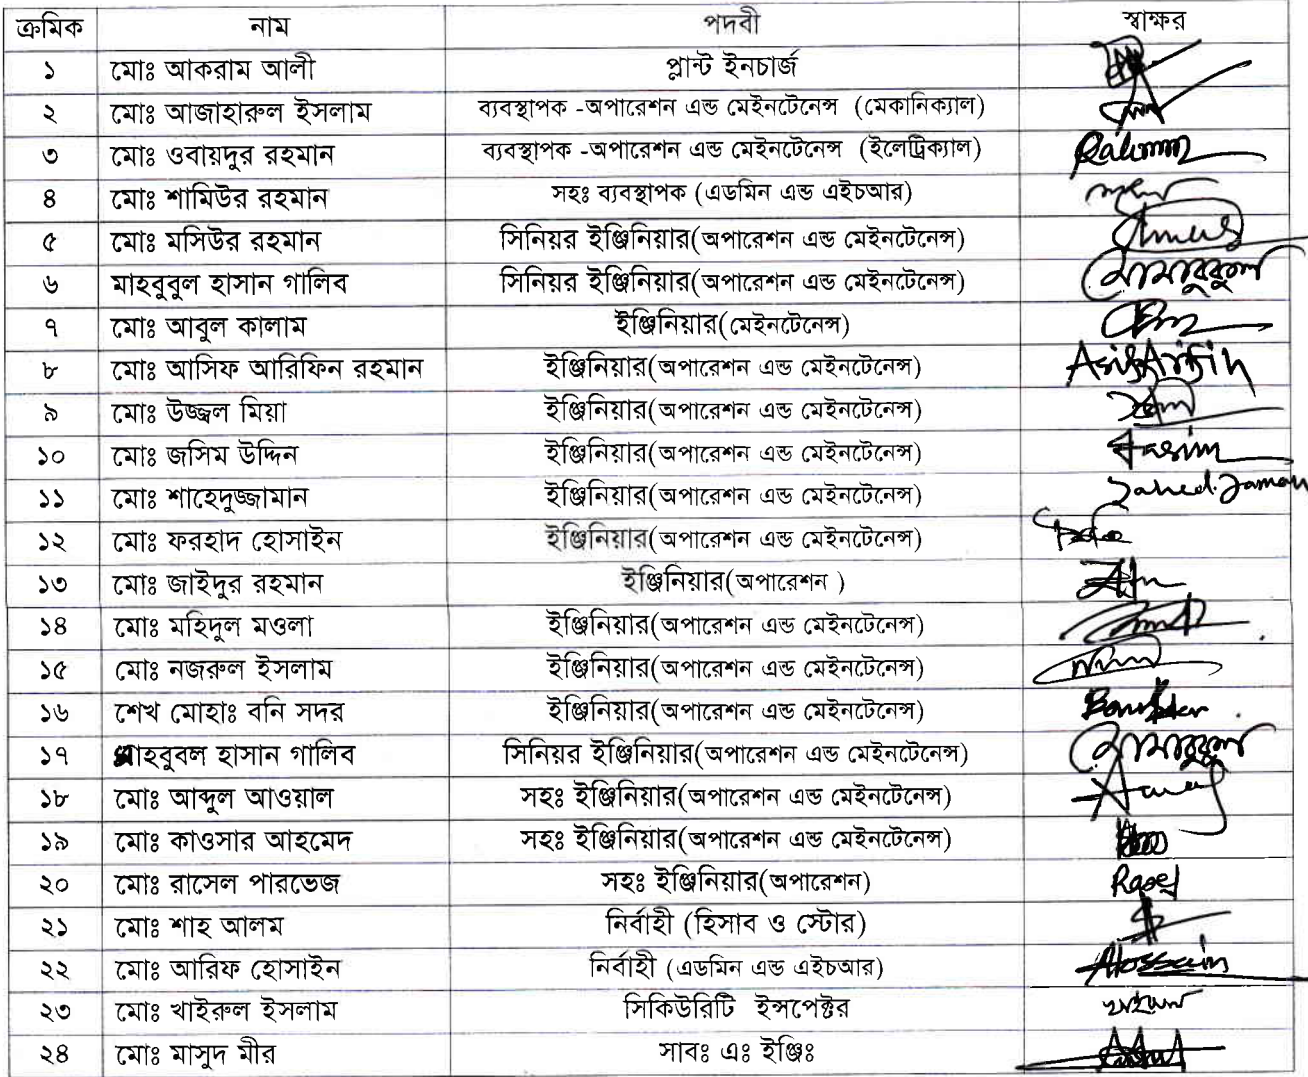 ক্রমিক নাম পদবী স্বাক্ষর
১ মোঃ আকরাম আলী প্লান্ট ইনচার্জ
২ মোঃ আজাহারুল ইসলাম ব্যবস্থাপক -অপারেশন এন্ড মেইনটেনেন্স (মেকানিক্যাল)
৩ মোঃ ওবায়দুর রহমান ব্যবস্থাপক -অপারেশন এন্ড মেইনটেনেন্স (ইলেট্রিক্যাল)
৪ মোঃ শামিউর রহমান সহঃ ব্যবস্থাপক (এডমিন এন্ড এইচআর)
৫ মোঃ মসিউর রহমান সিনিয়র ইঞ্জিনিয়ার(অপারেশন এন্ড মেইনটেনেন্স)
৬ মাহবুবুল হাসান গালিব সিনিয়র ইঞ্জিনিয়ার(অপারেশন এন্ড মেইনটেনেন্স)
৭ মোঃ আবুল কালাম ইঞ্জিনিয়ার(মেইনটেনেন্স)
৮ মোঃ আসিফ আরিফিন রহমান ইঞ্জিনিয়ার(অপারেশন এন্ড মেইনটেনেন্স) Asif Arifin
৯ মোঃ উজ্জ্বল মিয়া ইঞ্জিনিয়ার(অপারেশন এন্ড মেইনটেনেন্স)
১০ মোঃ জসিম উদ্দিন ইঞ্জিনিয়ার(অপারেশন এন্ড মেইনটেনেন্স) Jasim
১১ মোঃ শাহেদুজ্জামান ইঞ্জিনিয়ার(অপারেশন এন্ড মেইনটেনেন্স)
১২ মোঃ ফরহাদ হোসাইন ইঞ্জিনিয়ার(অপারেশন এন্ড মেইনটেনেন্স)
১৩ মোঃ জাইদুর রহমান ইঞ্জিনিয়ার(অপারেশন )
১৪ মোঃ মহিদুল মওলা ইঞ্জিনিয়ার(অপারেশন এন্ড মেইনটেনেন্স)
১৫ মোঃ নজরুল ইসলাম ইঞ্জিনিয়ার(অপারেশন এন্ড মেইনটেনেন্স)
১৬ শেখ মোহাঃ বনি সদর ইঞ্জিনিয়ার(অপারেশন এন্ড মেইনটেনেন্স)
১৭ মাহবুবল হাসান গালিব সিনিয়র ইঞ্জিনিয়ার(অপারেশন এন্ড মেইনটেনেন্স)
১৮ মোঃ আব্দুল আওয়াল সহঃ ইঞ্জিনিয়ার(অপারেশন এন্ড মেইনটেনেন্স)
১৯ মোঃ কাওসার আহমেদ সহঃ ইঞ্জিনিয়ার(অপারেশন এন্ড মেইনটেনেন্স)
২০ মোঃ রাসেল পারভেজ সহঃ ইঞ্জিনিয়ার(অপারেশন) Rasel
২১ মোঃ শাহ আলম নির্বাহী (হিসাব ও স্টোর)
২২ মোঃ আরিফ হোসাইন নির্বাহী (এডমিন এন্ড এইচআর) AHossain
২৩ মোঃ খাইরুল ইসলাম সিকিউরিটি ইন্সপেক্টর
২৪ মোঃ মাসুদ মীর সাবঃ এঃ ইঞ্জিঃ